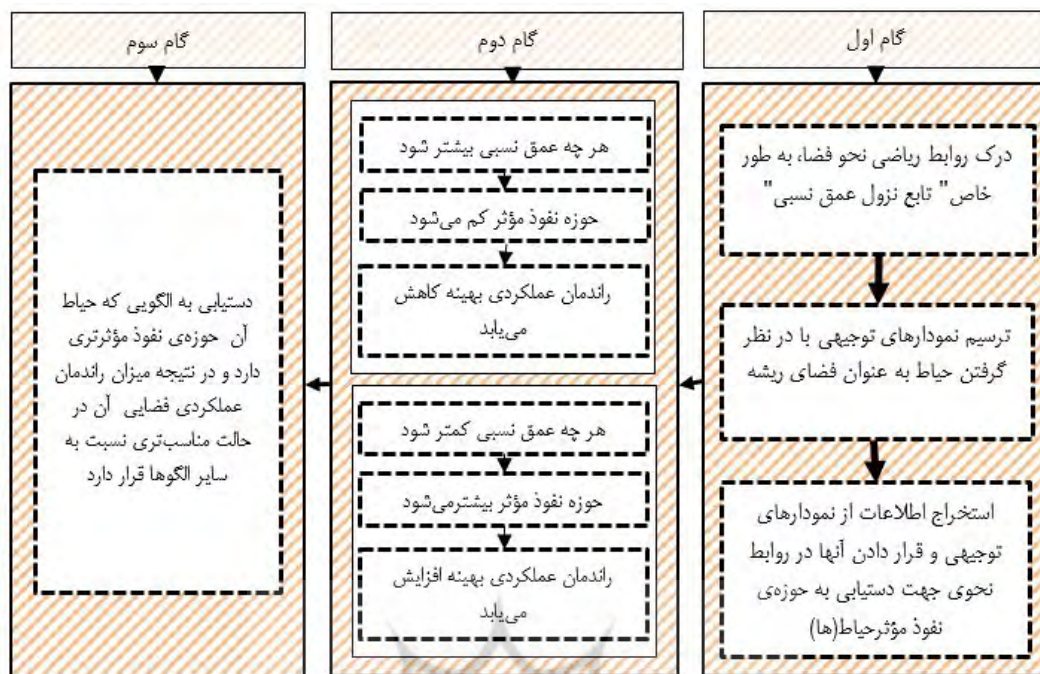 گام اول
درک روابط ریاضی نحو فضا، به طور
خاص" تابع نزول عمق نسبی"
ترسیم نمودارهای توجیهی با در نظر
گرفتن حیاط به عنوان فضای ریشه
استخراج اطلاعات از نمودارهای
توجیهی و قرار دادن آنها در روابط
نحوی جهت دستیابی به حوزه‌ی
نفوذ مؤثرحیاط(ها)
گام دوم
هر چه عمق نسبی بیشتر شود
حوزه نفوذ مؤثر کم می‌شود
راندمان عملکردی بهینه کاهش
می‌یابد
هر چه عمق نسبی کمتر شود
حوزه نفوذ مؤثر بیشترمی‌شود
راندمان عملکردی بهینه افزایش
می‌یابد
گام سوم
دستیابی به الگویی که حیاط
آن حوزه‌ی نفوذ مؤثرتری
دارد و در نتیجه میزان راندمان
عملکردی فضایی آن در
حالت مناسب‌تری نسبت به
سایر الگوها قرار دارد